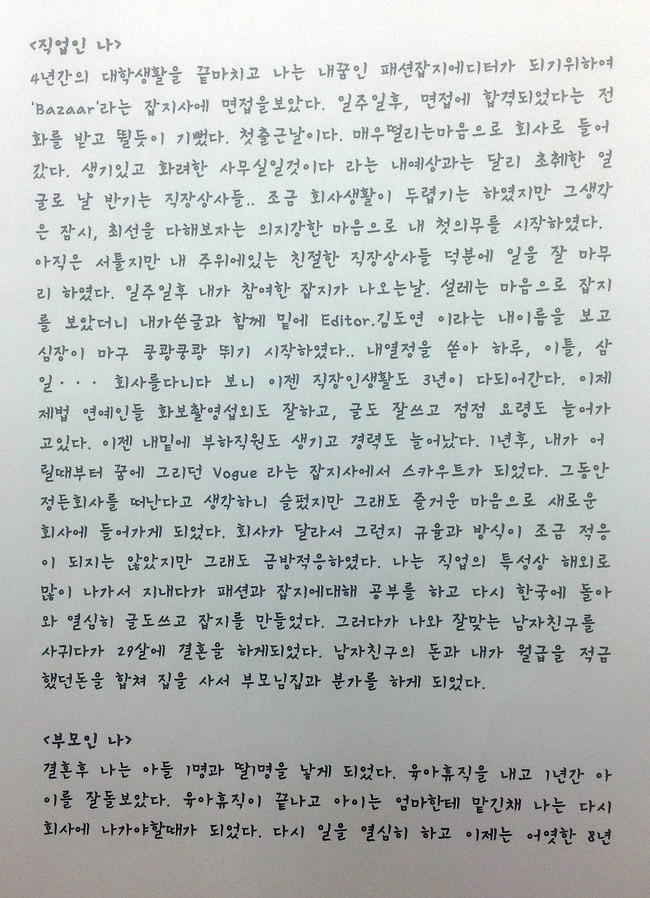 <직업인 나>
4년간의 대학생활을 끝마치고 나는 내꿈인 패션잡지에디터가 되기위하여
'Bazaar'라는 잡지사에 면접을보았다. 일주일후, 면접에 합격되었다는 전
화를 받고 뛸듯이 기뻤다. 첫출근날이다. 매우떨리는마음으로 회사로 들어
갔다. 생기있고 화려한 사무실일것이다 라는 내예상과는 달리 초췌한 얼
굴로 날 반기는 직장상사들.. 조금 회사생활이 두렵기는 하였지만 그생각
은 잠시, 최선을 다해보자는 의지강한 마음으로 내 첫의무를 시작하였다.
아직은 서툴지만 내 주위에있는 친절한 직장상사들 덕분에 일을 잘 마무
리 하였다. 일주일후 내가 참여한 잡지가 나오는날. 설레는 마음으로 잡지
를 보았더니 내가쓴글과 함께 밑에 Editor.김도연 이라는 내이름을 보고
심장이 마구 쿵쾅쿵쾅 뛰기 시작하였다.. 내열정을 쏟아 하루, 이틀, 삼
일··· 회사를다니다 보니 이젠 직장인생활도 3년이 다되어간다. 이제
제법 연예인들 화보촬영섭외도 잘하고, 글도 잘쓰고 점점 요령도 늘어가
고있다. 이젠 내밑에 부하직원도 생기고 경력도 늘어났다. 1년후, 내가 어
릴때부터 꿈에 그리던 Vogue 라는 잡지사에서 스카우트가 되었다. 그동안
정든회사를 떠난다고 생각하니 슬펐지만 그래도 즐거운 마음으로 새로운
회사에 들어가게 되었다. 회사가 달라서 그런지 규율과 방식이 조금 적응
이 되지는 않았지만 그래도 금방적응하였다. 나는 직업의 특성상 해외로
많이 나가서 지내다가 패션과 잡지에대해 공부를 하고 다시 한국에 돌아
와 열심히 글도쓰고 잡지를 만들었다. 그러다가 나와 잘맞는 남자친구를
사귀다가 29살에 결혼을 하게되었다. 남자친구의 돈과 내가 월급을 적금
했던돈을 합쳐 집을 사서 부모님집과 분가를 하게 되었다.
<부모인 나>
결혼후 나는 아들 1명과 딸1명을 낳게 되었다. 육아휴직을 내고 1년간 아
이를 잘돌보았다. 육아휴직이 끝나고 아이는 엄마한테 맡긴채 나는 다시
회사에 나가야할때가 되었다. 다시 일을 열심히 하고 이제는 어엿한 8년